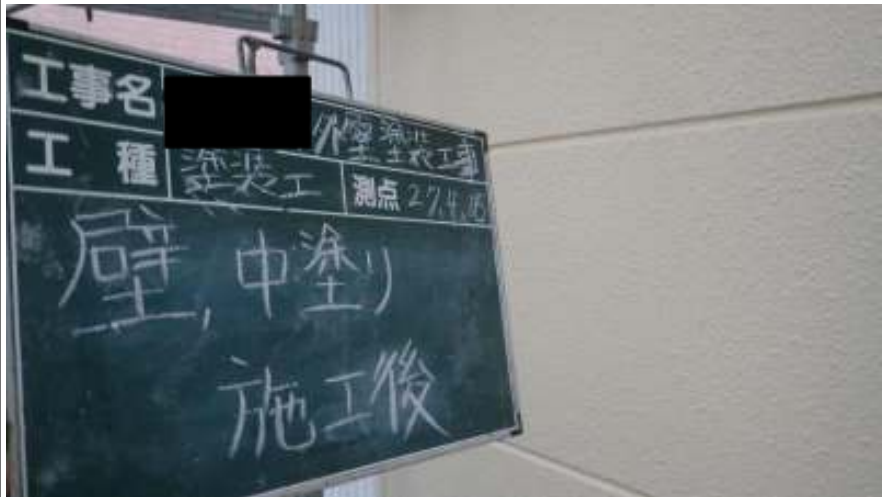 工事名 外壁塗装工事
工種 塗装工 測点 27.4.16
壁,中塗り
施工後